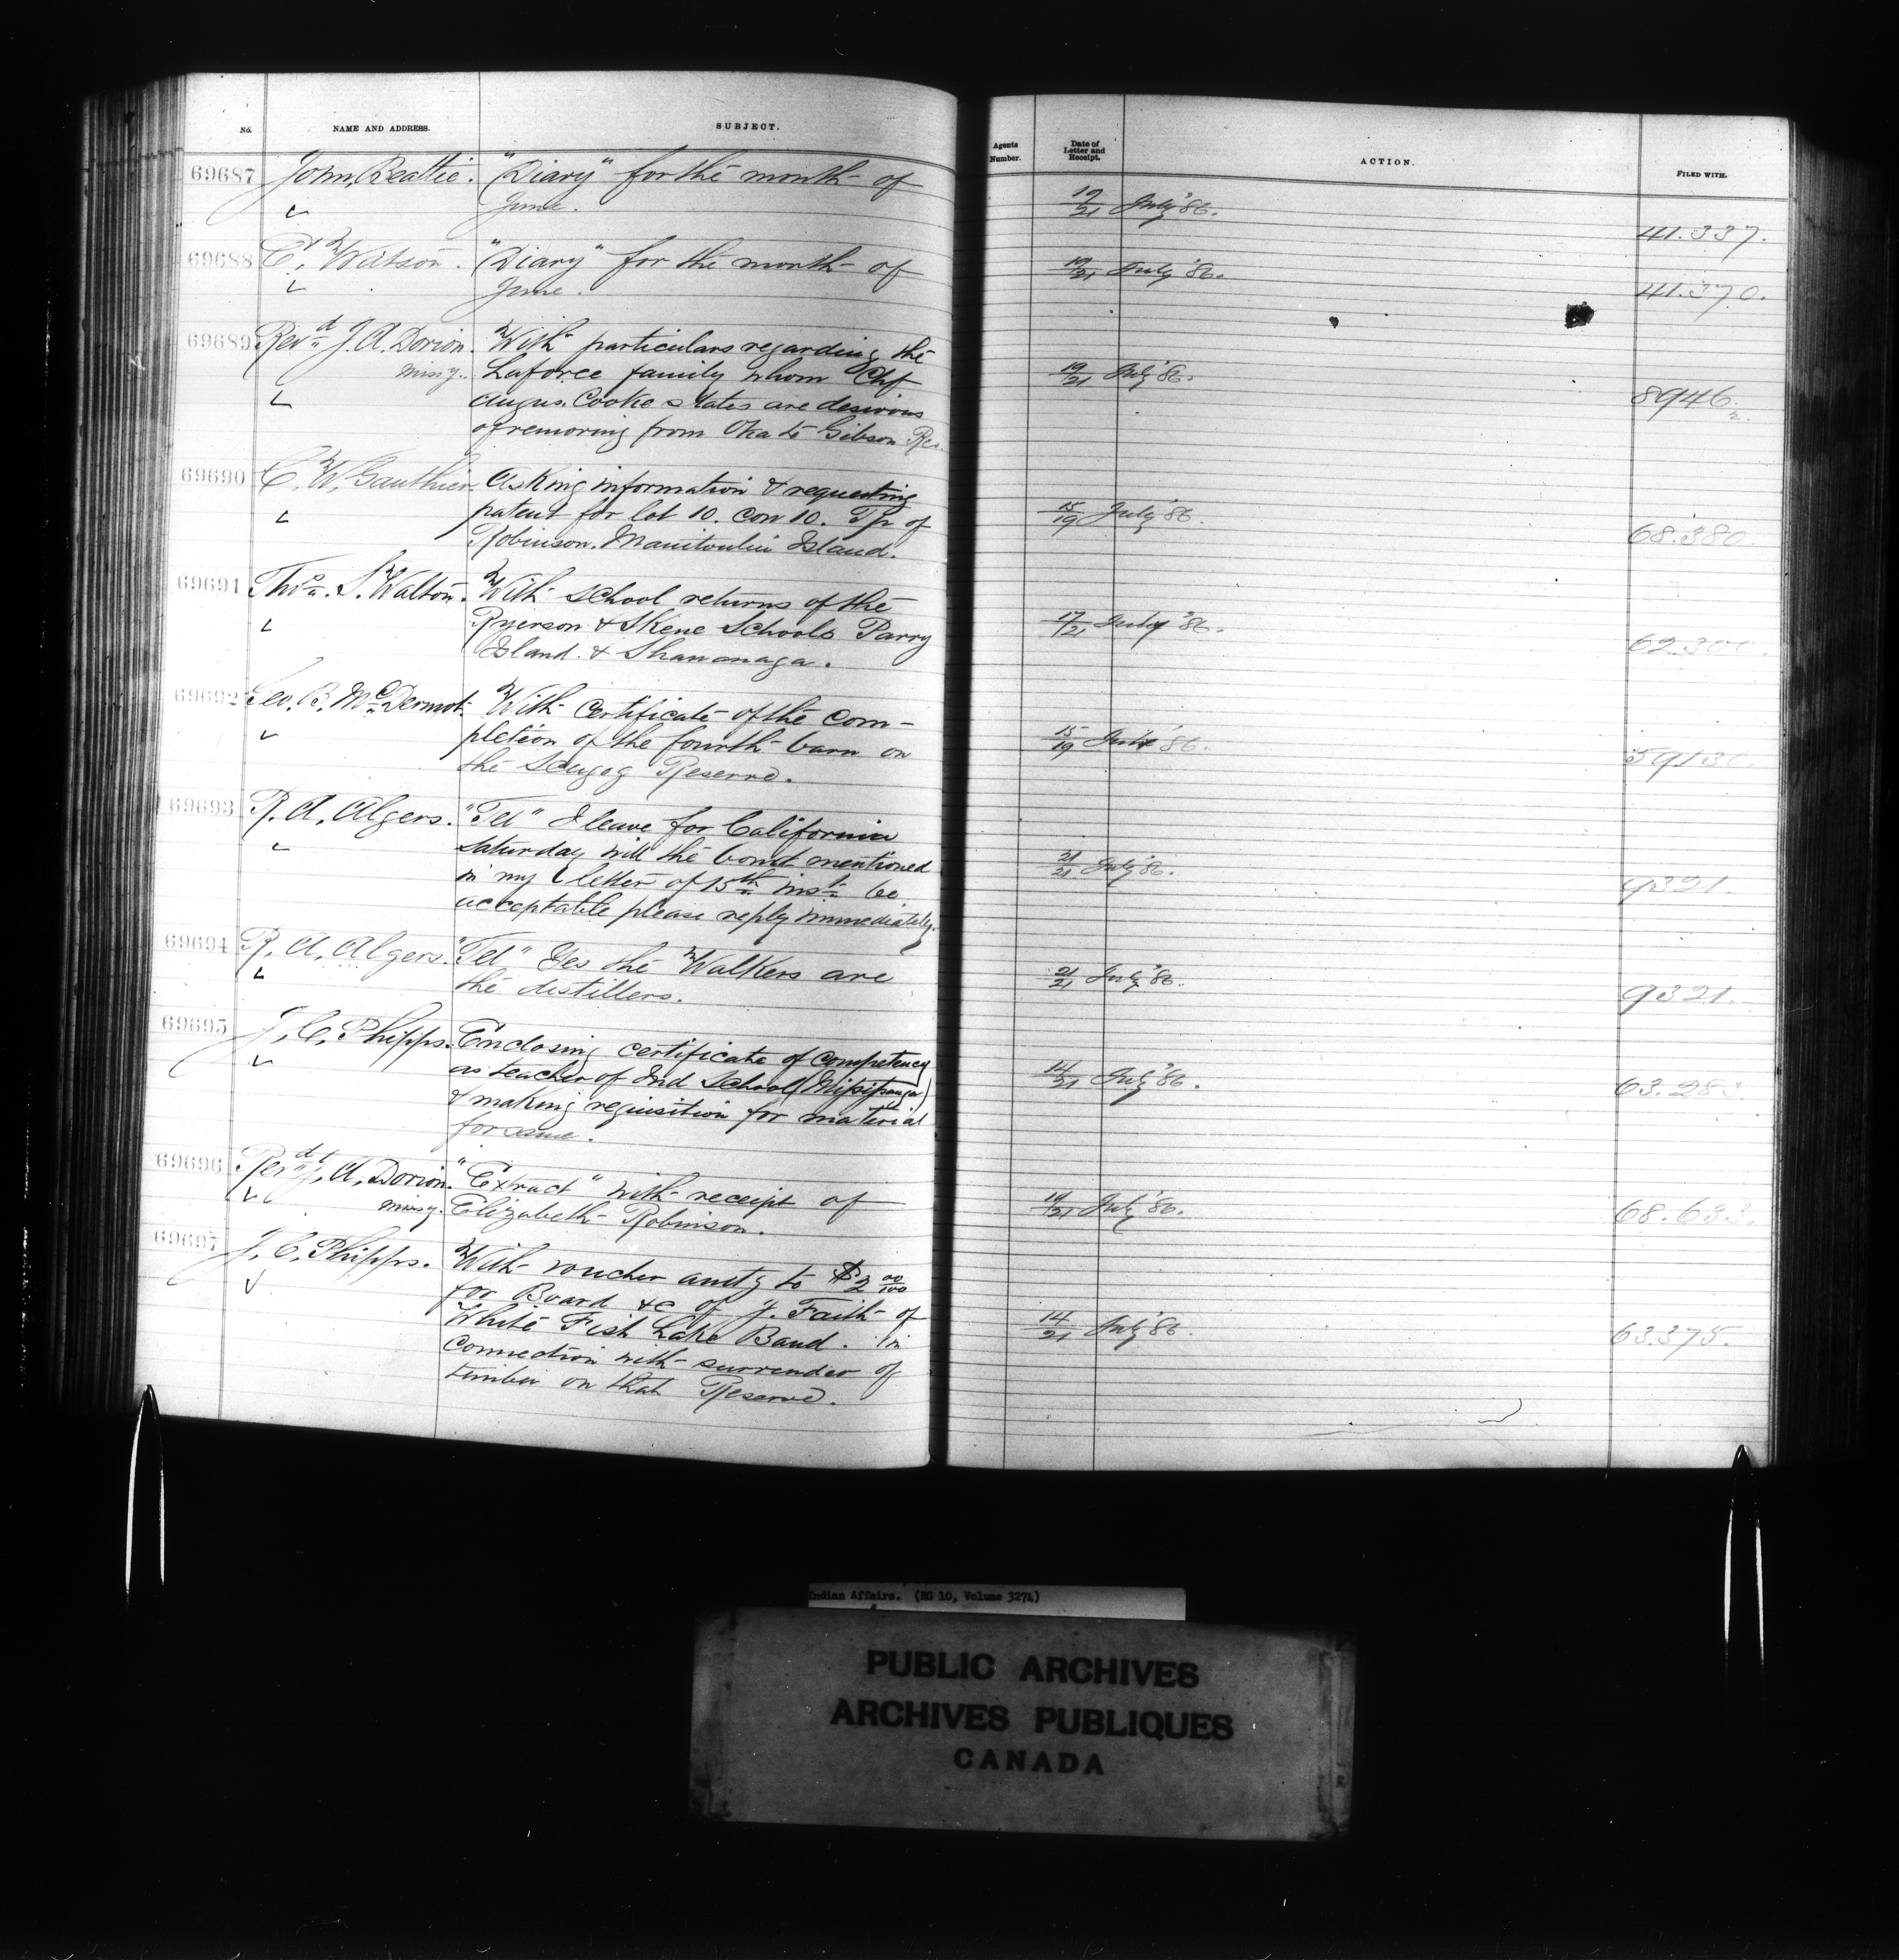 No. NAME AND ADDRESS. SUBJECT. Agents Number. Date of Letter and Receipt. ACTION. FILED WITH.
69687 John Beattie. "Diary" for the month of 19/21 July '86. 41.337.
June.
69688 C. Watson. "Diary" for the month of 19/21 July '86. 41.370.
June.
69689 Revd J. A. Dorion. With particulars regarding the 19/21 July '86. 8946.
Missy. Laforce family whom Chf
Angus Cooke states are desirous
of removing from Oka to Gibson Res.
69690 C. W. Gauthier. Asking information & requesting 15/19 July '86. 68.380.
patent for lot 10. Con 10. Tp of
Robinson. Manitoulin Island.
69691 Thos. S. Walton. With School returns of the 17/21 July '86. 62.300.
Ryerson & Skene Schools Parry
Island. & Shawanaga.
69692 Geo. B. McDermot. With Certificate of the Com- 15/19 July '86. 59130.
pletion of the fourth barn on
the Scugog Reserve.
69693 R. A. Algers. "Tel" I leave for California 21/21 July '86. 9321.
Saturday will the bond mentioned
in my letter of 15th inst be
acceptable please reply immediately.
69694 R. A. Algers. "Tel" Yes the Walkers are 21/21 July '86. 9321.
the distillers.
69695 J. C. Phipps. Enclosing certificate of Competency 14/21 July '86. 63.283.
as teacher of Ind School
& making requisition for material
for same.
69696 Revd J. A. Dorion. "Extract" with receipt of 19/21 July '86. 68.633.
Missy. Elizabeth Robinson.
69697 J. C. Phipps. With voucher amtg to $2 00/100 14/21 July '86. 63.375.
for Board &c of J. Faith of
White Fish Lake Band. in
connection with surrender of
timber on that Reserve.
Indian Affairs. (RG 10, Volume 3274)
PUBLIC ARCHIVES
ARCHIVES PUBLIQUES
CANADA